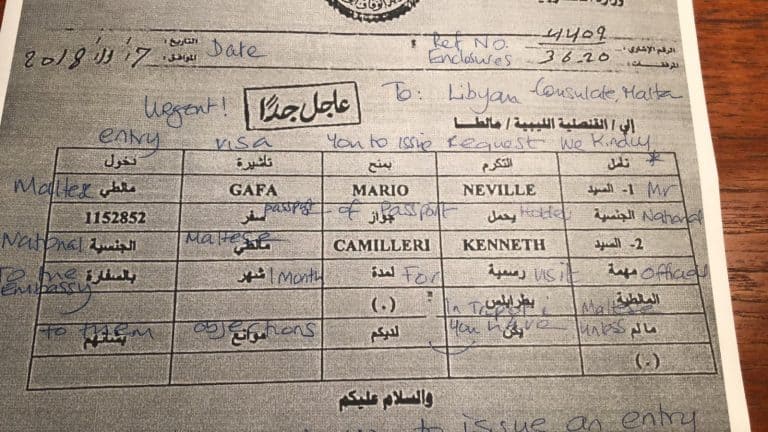 التاريخ: Date Ref No. 4409 الرقم الإشاري:
الموافق: Enclosures 36.20 المرفقات:
Urgent! عاجل جدًا To: Libyan Consulate, Malta
إلى/ القنصلية الليبية / مالطا
entry visa you to issue request We Kindly *
نأمل التكرم بمنح تأشيرة دخول
1- السيد Mr NEVILLE MARIO GAFA مالطي Maltese
الجنسية National يحمل Holder جواز of Passport سفر passport 1152852
2- السيد KENNETH CAMILLERI مالطي Maltese الجنسية National
مهمة Official رسمية visit لمدة For شهر 1 month بالسفارة To the embassy
المالطية Maltese بطرابلس In Tripoli (.)
مالم unless يكن you have لديكم موانع objections بشأنهم to them
(.)
والسلام عليكم
to issue an entry